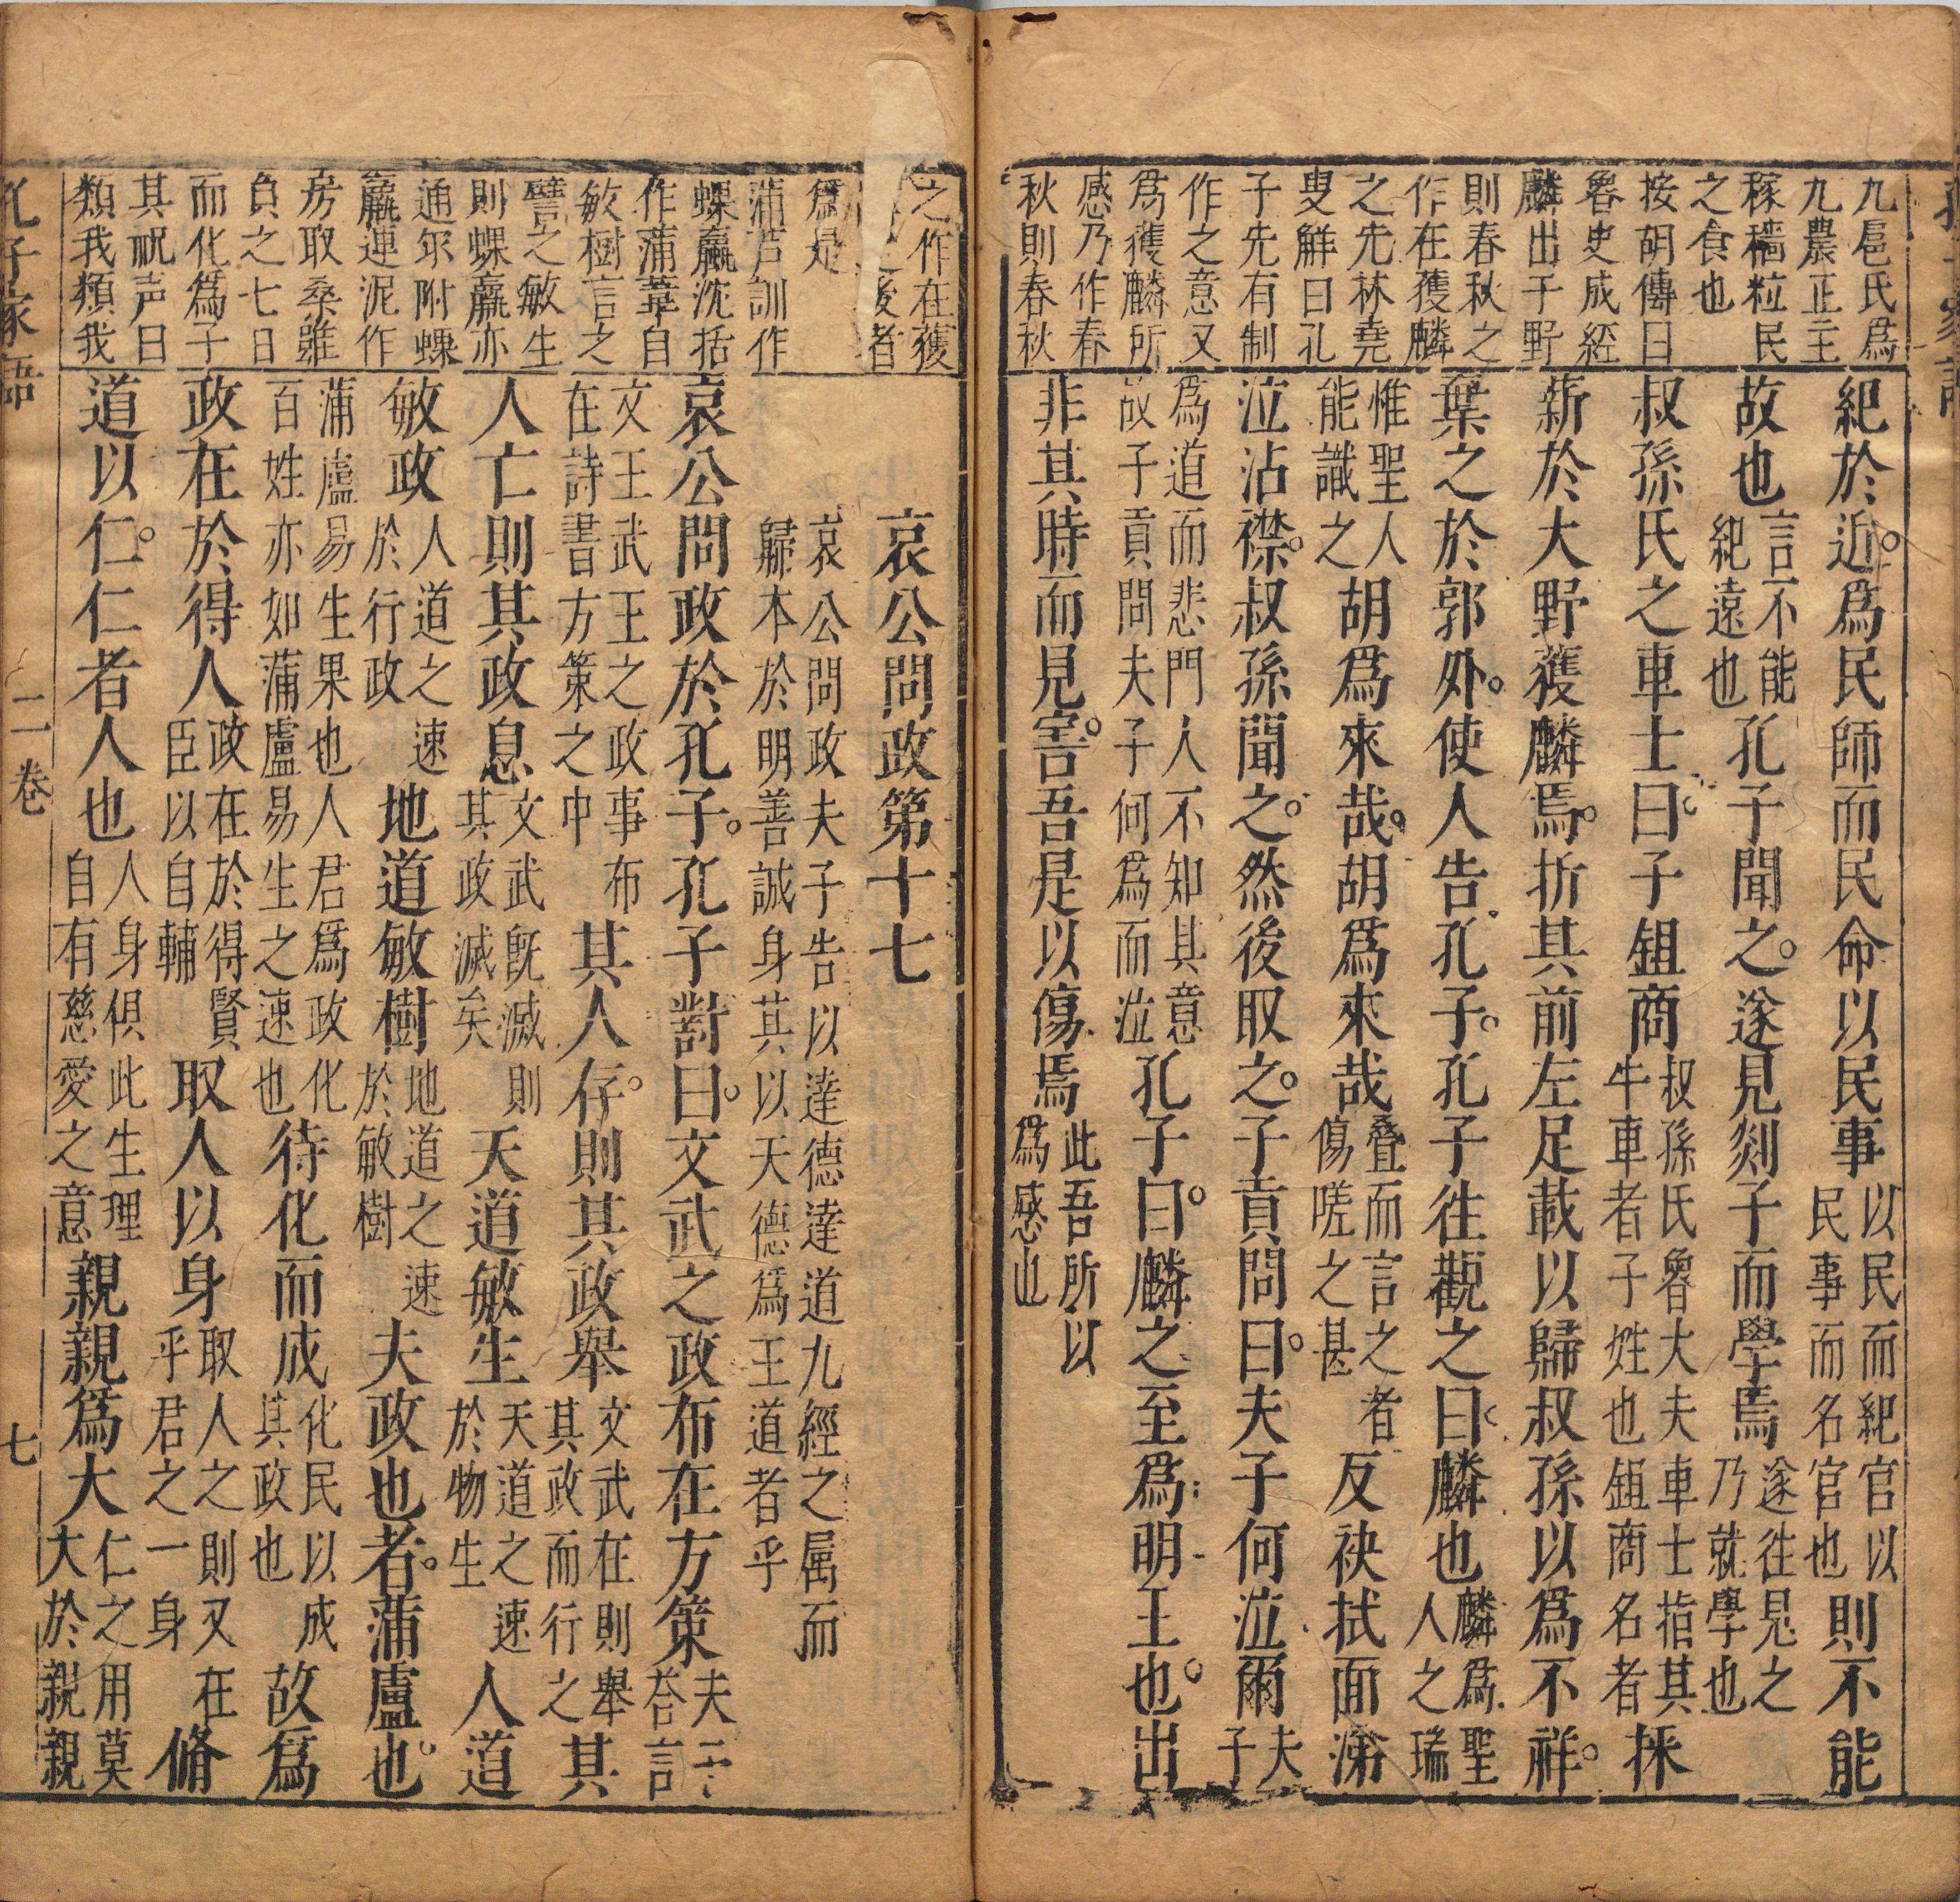 九扈氏爲
九農正主
稼穡粒民
之食也
按胡傳曰
魯史成經
麟出于野
則春秋之
作在獲麟
之先林堯
叟解曰孔
子先有制
作之意又
爲獲麟所
感乃作春
秋則春秋
紀於近爲民師而民命以民事以民而紀官以民事而名官也則不能
故也言不能紀遠也孔子聞之遂見剡子而學焉遂往見之乃就學也
叔孫氏之車士曰子鉏商叔孫氏魯大夫車士指其牛車者子姓也鉏商名者採
薪於大野獲麟焉折其前左足載以歸叔孫以爲不祥
葉之於郭外使人告孔子孔子往觀之曰麟也麟爲聖人之瑞
惟聖人能識之胡爲來哉胡爲來哉叠而言之者傷嗟之甚反袂拭面涕
泣沾襟叔孫聞之然後取之子貢問曰夫子何泣爾夫子
爲道而悲門人不知其意故子貢問夫子何爲而泣孔子曰麟之至爲明王也出
非其時而見害吾是以傷焉此吾所以爲感也
之作在獲
後者
爲是
蒲芦訓作
蜾蠃沈括
作蒲葦自
敏樹言之
譬之敏生
則蜾蠃亦
通尔附蜾
蠃連泥作
房取桑雖
負之七日
而化爲子
其祝声曰
類我類我
哀公問政第十七
哀公問政夫子告以達德達道九經之属而歸本於明善誠身其以天德爲王道者乎
哀公問政於孔子孔子對曰文武之政布在方策夫子荅言
文王武王之政事布在詩書方策之中其人存則其政舉文武在則舉其政而行之其
人亡則其政息文武旣滅則其政滅矣天道敏生天道之速於物生人道
敏政人道之速於行政地道敏樹地道之速於敏樹夫政也者蒲盧也
蒲盧易生果也人君爲政化百姓亦如蒲盧易生之速也待化而成化民以成其政也故爲
政在於得人政在於得賢臣以自輔取人以身取人之則又在乎君之一身脩
道以仁仁者人也人身俱此生理自有慈愛之意親親爲大仁之用莫大於親親
孔子家語
二卷
七